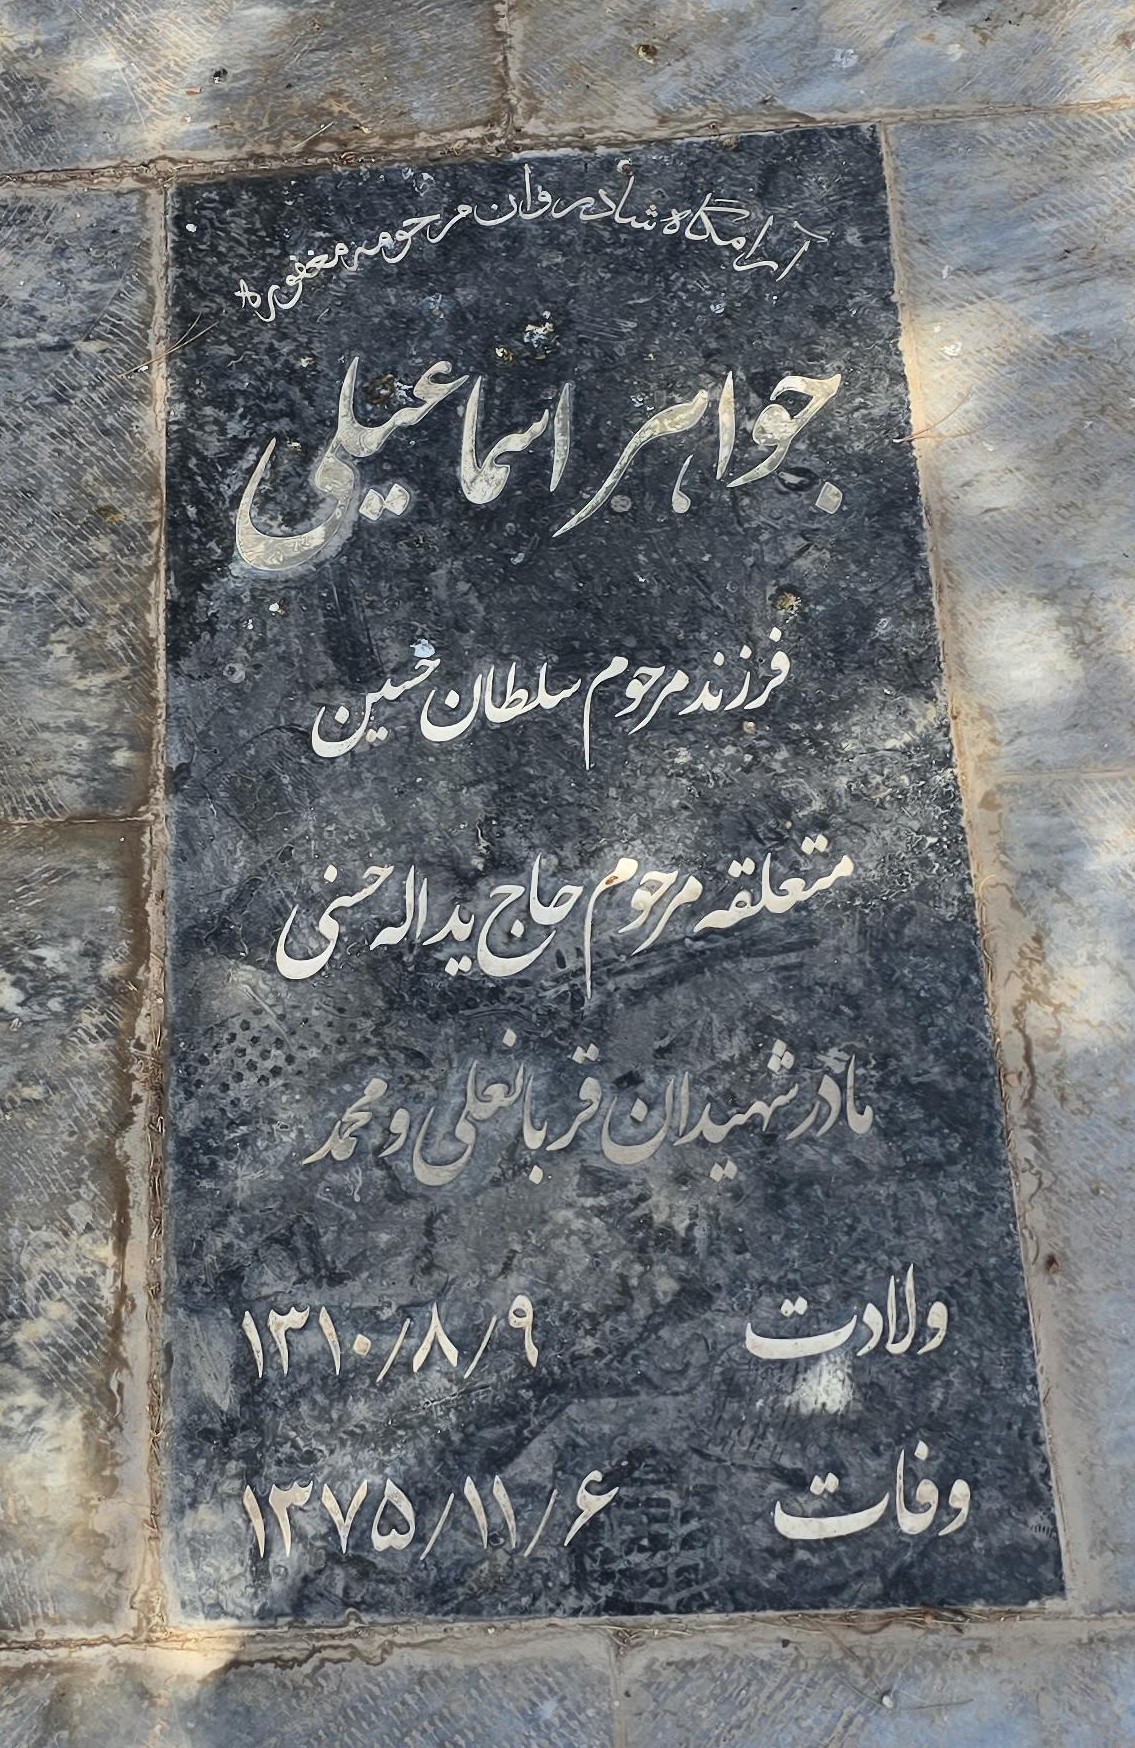 آرامگاه شادروان مرحومه مغفوره
جواهر اسماعیلی
فرزند مرحوم سلطان حسین
متعلقه مرحوم حاج یداله حسنی
مادر شهیدان قربانعلی و محمد
ولادت ۱۳۱۰/۸/۹
وفات ۱۳۷۵/۱۱/۶